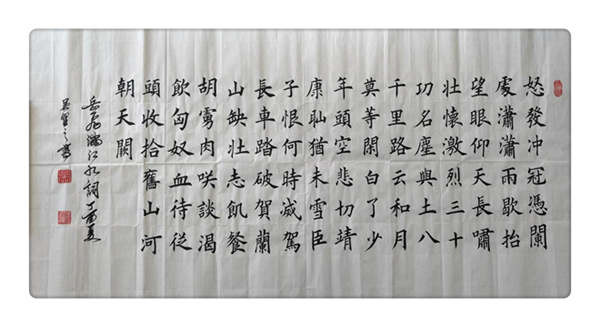 怒發冲冠憑闌
處瀟瀟雨歇抬
望眼仰天長嘯
壯懷激烈三十
功名塵與土八
千里路云和月
莫等閑白了少
年頭空悲切靖
康耻猶未雪臣
子恨何時滅駕
長車踏破賀蘭
山缺壯志飢餐
胡虜肉咲談渴
飲匈奴血待従
頭收拾舊山河
朝天闕
岳飛滿江紅詞丁酉夏